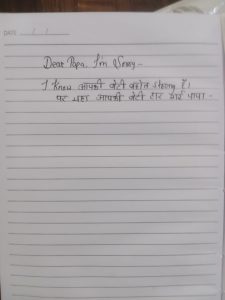 DATE / /
Dear Papa, I'm Sorry -
I know आपकी बेटी बहोत strong है।
पर यहा आपकी बेटी हार गई पापा -